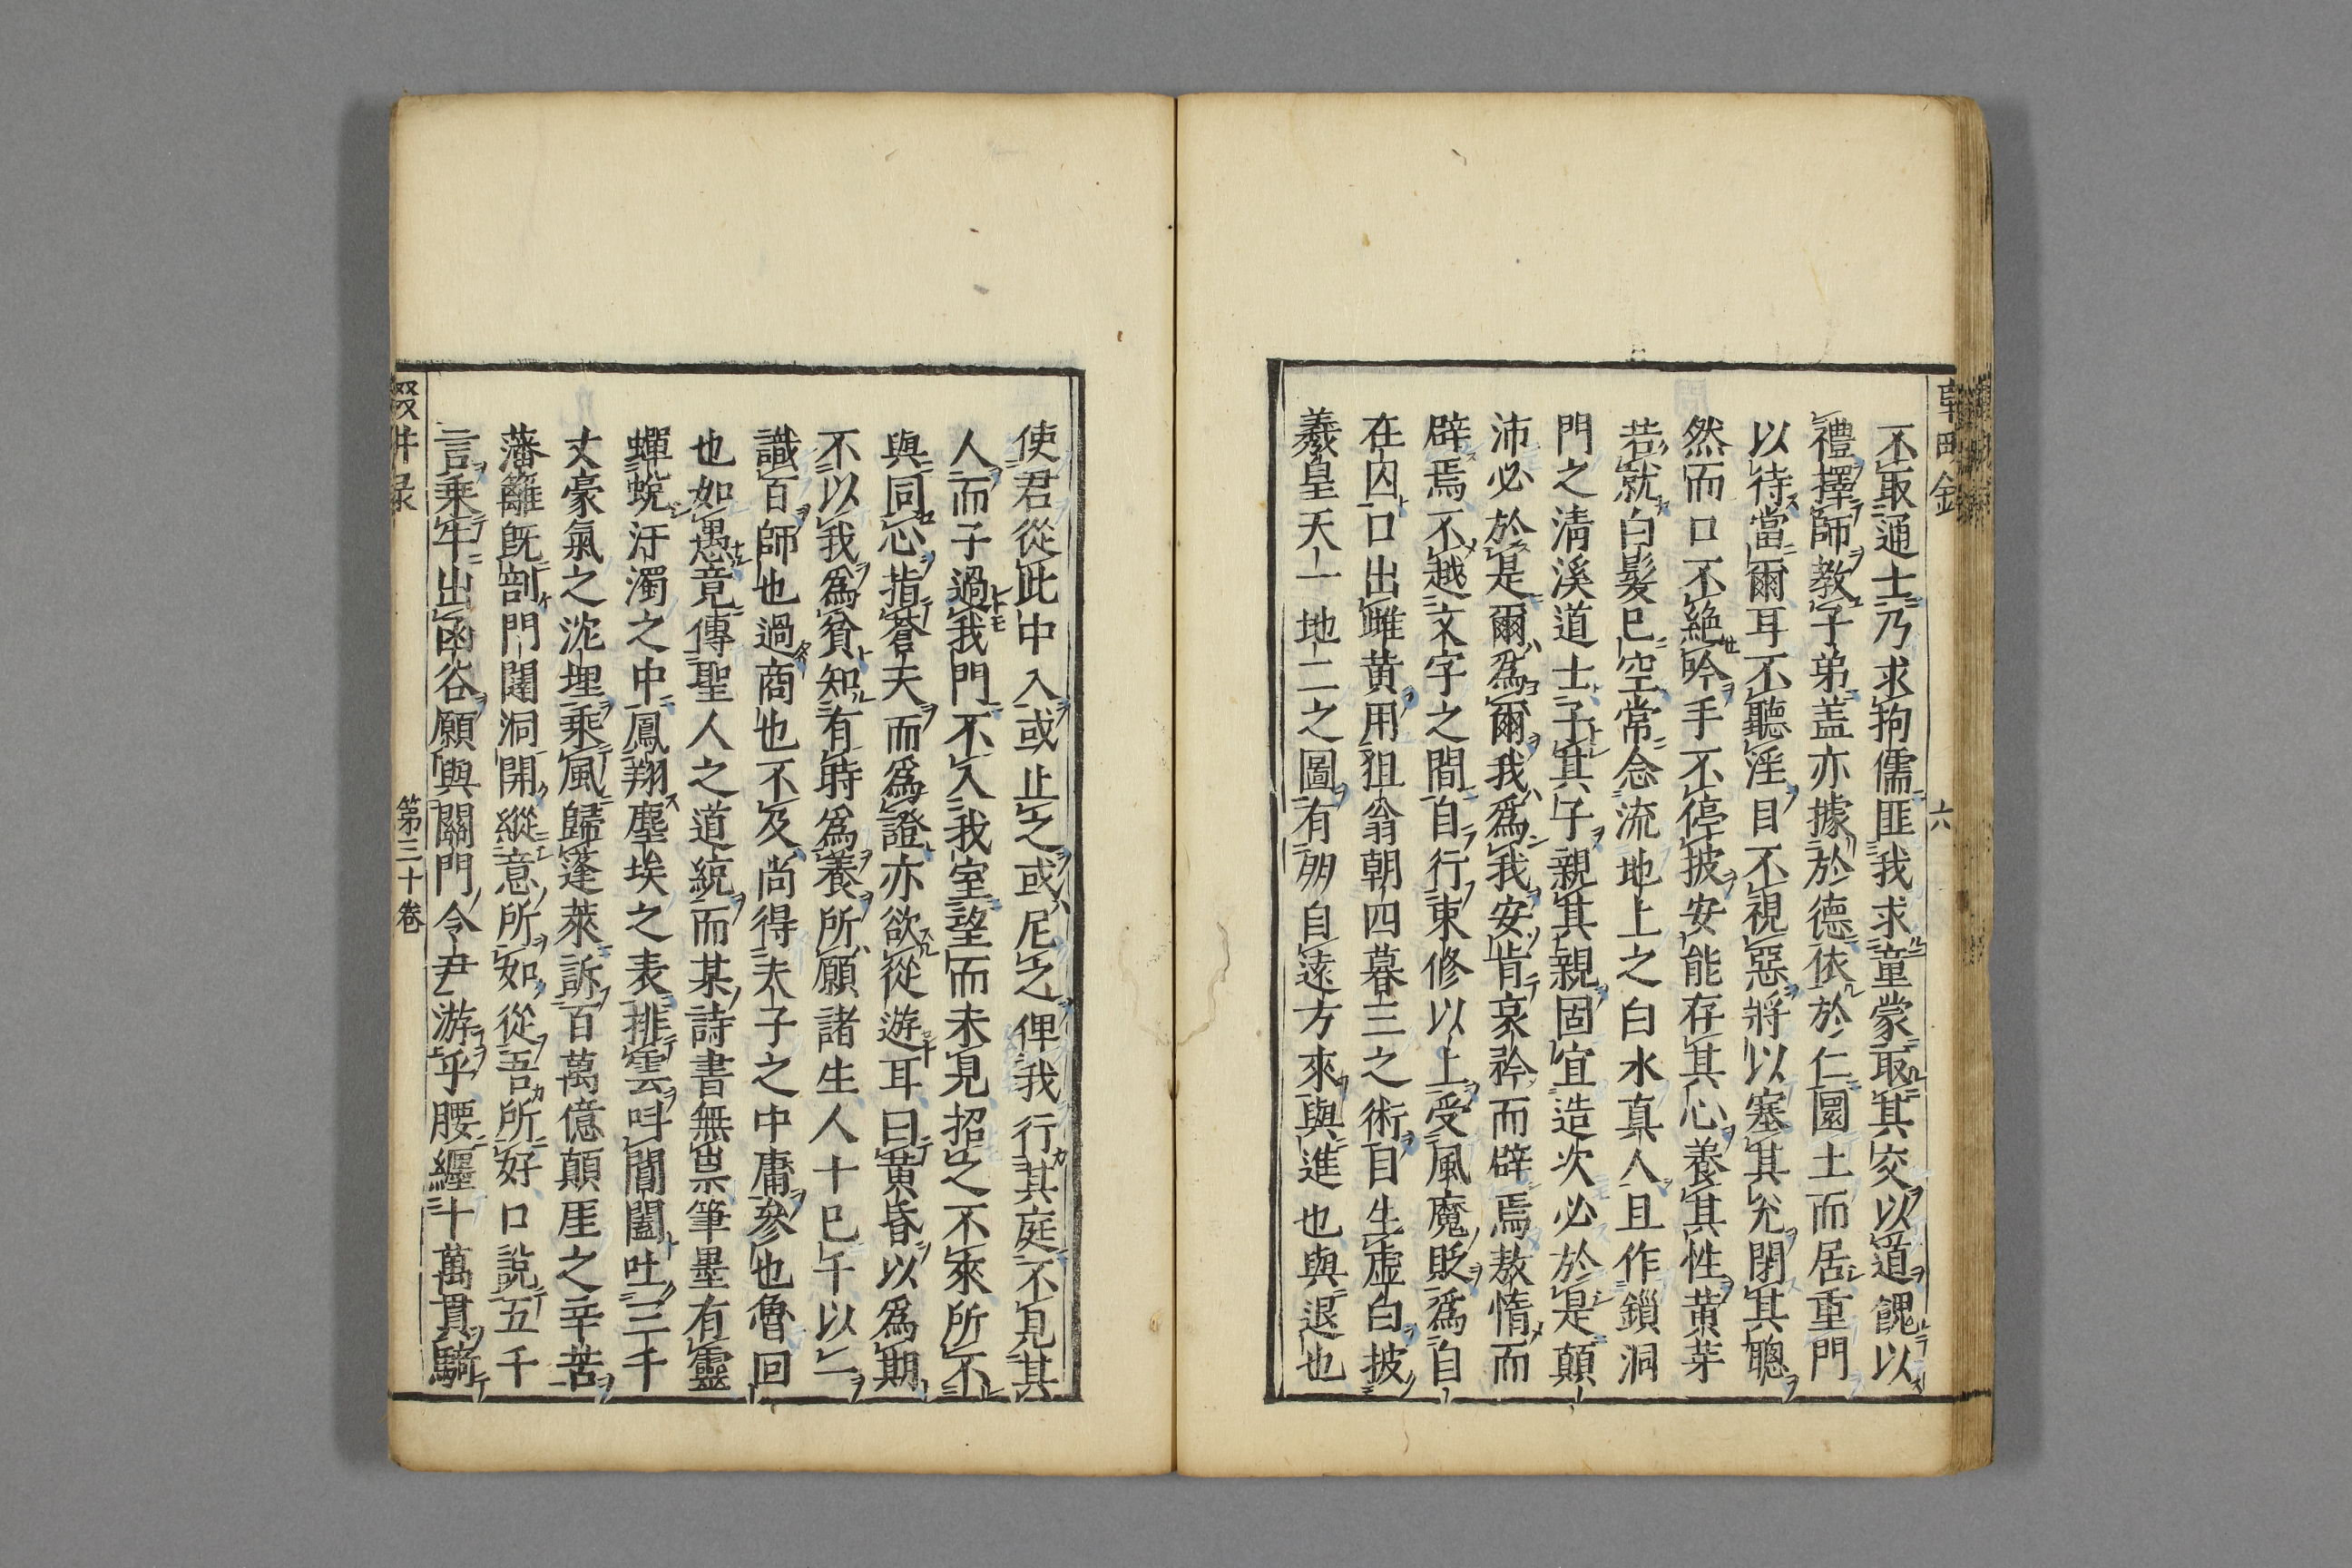 不取通士乃求拘儒匪我求童蒙取其交以道餽以
禮擇師教子弟盖亦據於德依於仁圜土而居重門
以待當爾耳不聽淫目不視惡將以塞其兊閉其聰
然而口不絶吟手不停披安能存其心養其性黄芽
若就白髮已空常念流地上之白水真人且作鎻洞
門之清溪道士子其子親其親固宜造次必於是顛
沛必於是爾爲爾我爲我安肯哀矜而辟焉敖惰而
辟焉不越文字之間自行束修以上受風魔貶爲自
在囚口出雌黄用狙翁朝四暮三之術目生虚白披
羲皇天一地二之圖有朋自遠方來與進也與退也
六
使君從此中入或止之或尼之俾我行其庭不見其
人而子過我門不入我室望而未見招之不來所不
與同心指蒼天而爲證亦欲從游耳曰黄昏以爲期
不以我爲貧知有時爲養所願諸生人十巳午以一
識百師也過商也不及尚得夫子之中庸參也魯回
也如愚竟傳聖人之道統而某詩書無祟筆墨有靈
蟬蛻汙濁之中鳳翔塵埃之表排雲呌閶闔吐三千
丈豪氣之沈埋乘風歸蓬萊訴百萬億顛厓之辛苦
藩籬旣剖門闥洞開縱意所如從吾所好口説五千
言乘牢出函谷願與關門令尹游乎腰纒十萬貫騎
輟畊録
第三十卷